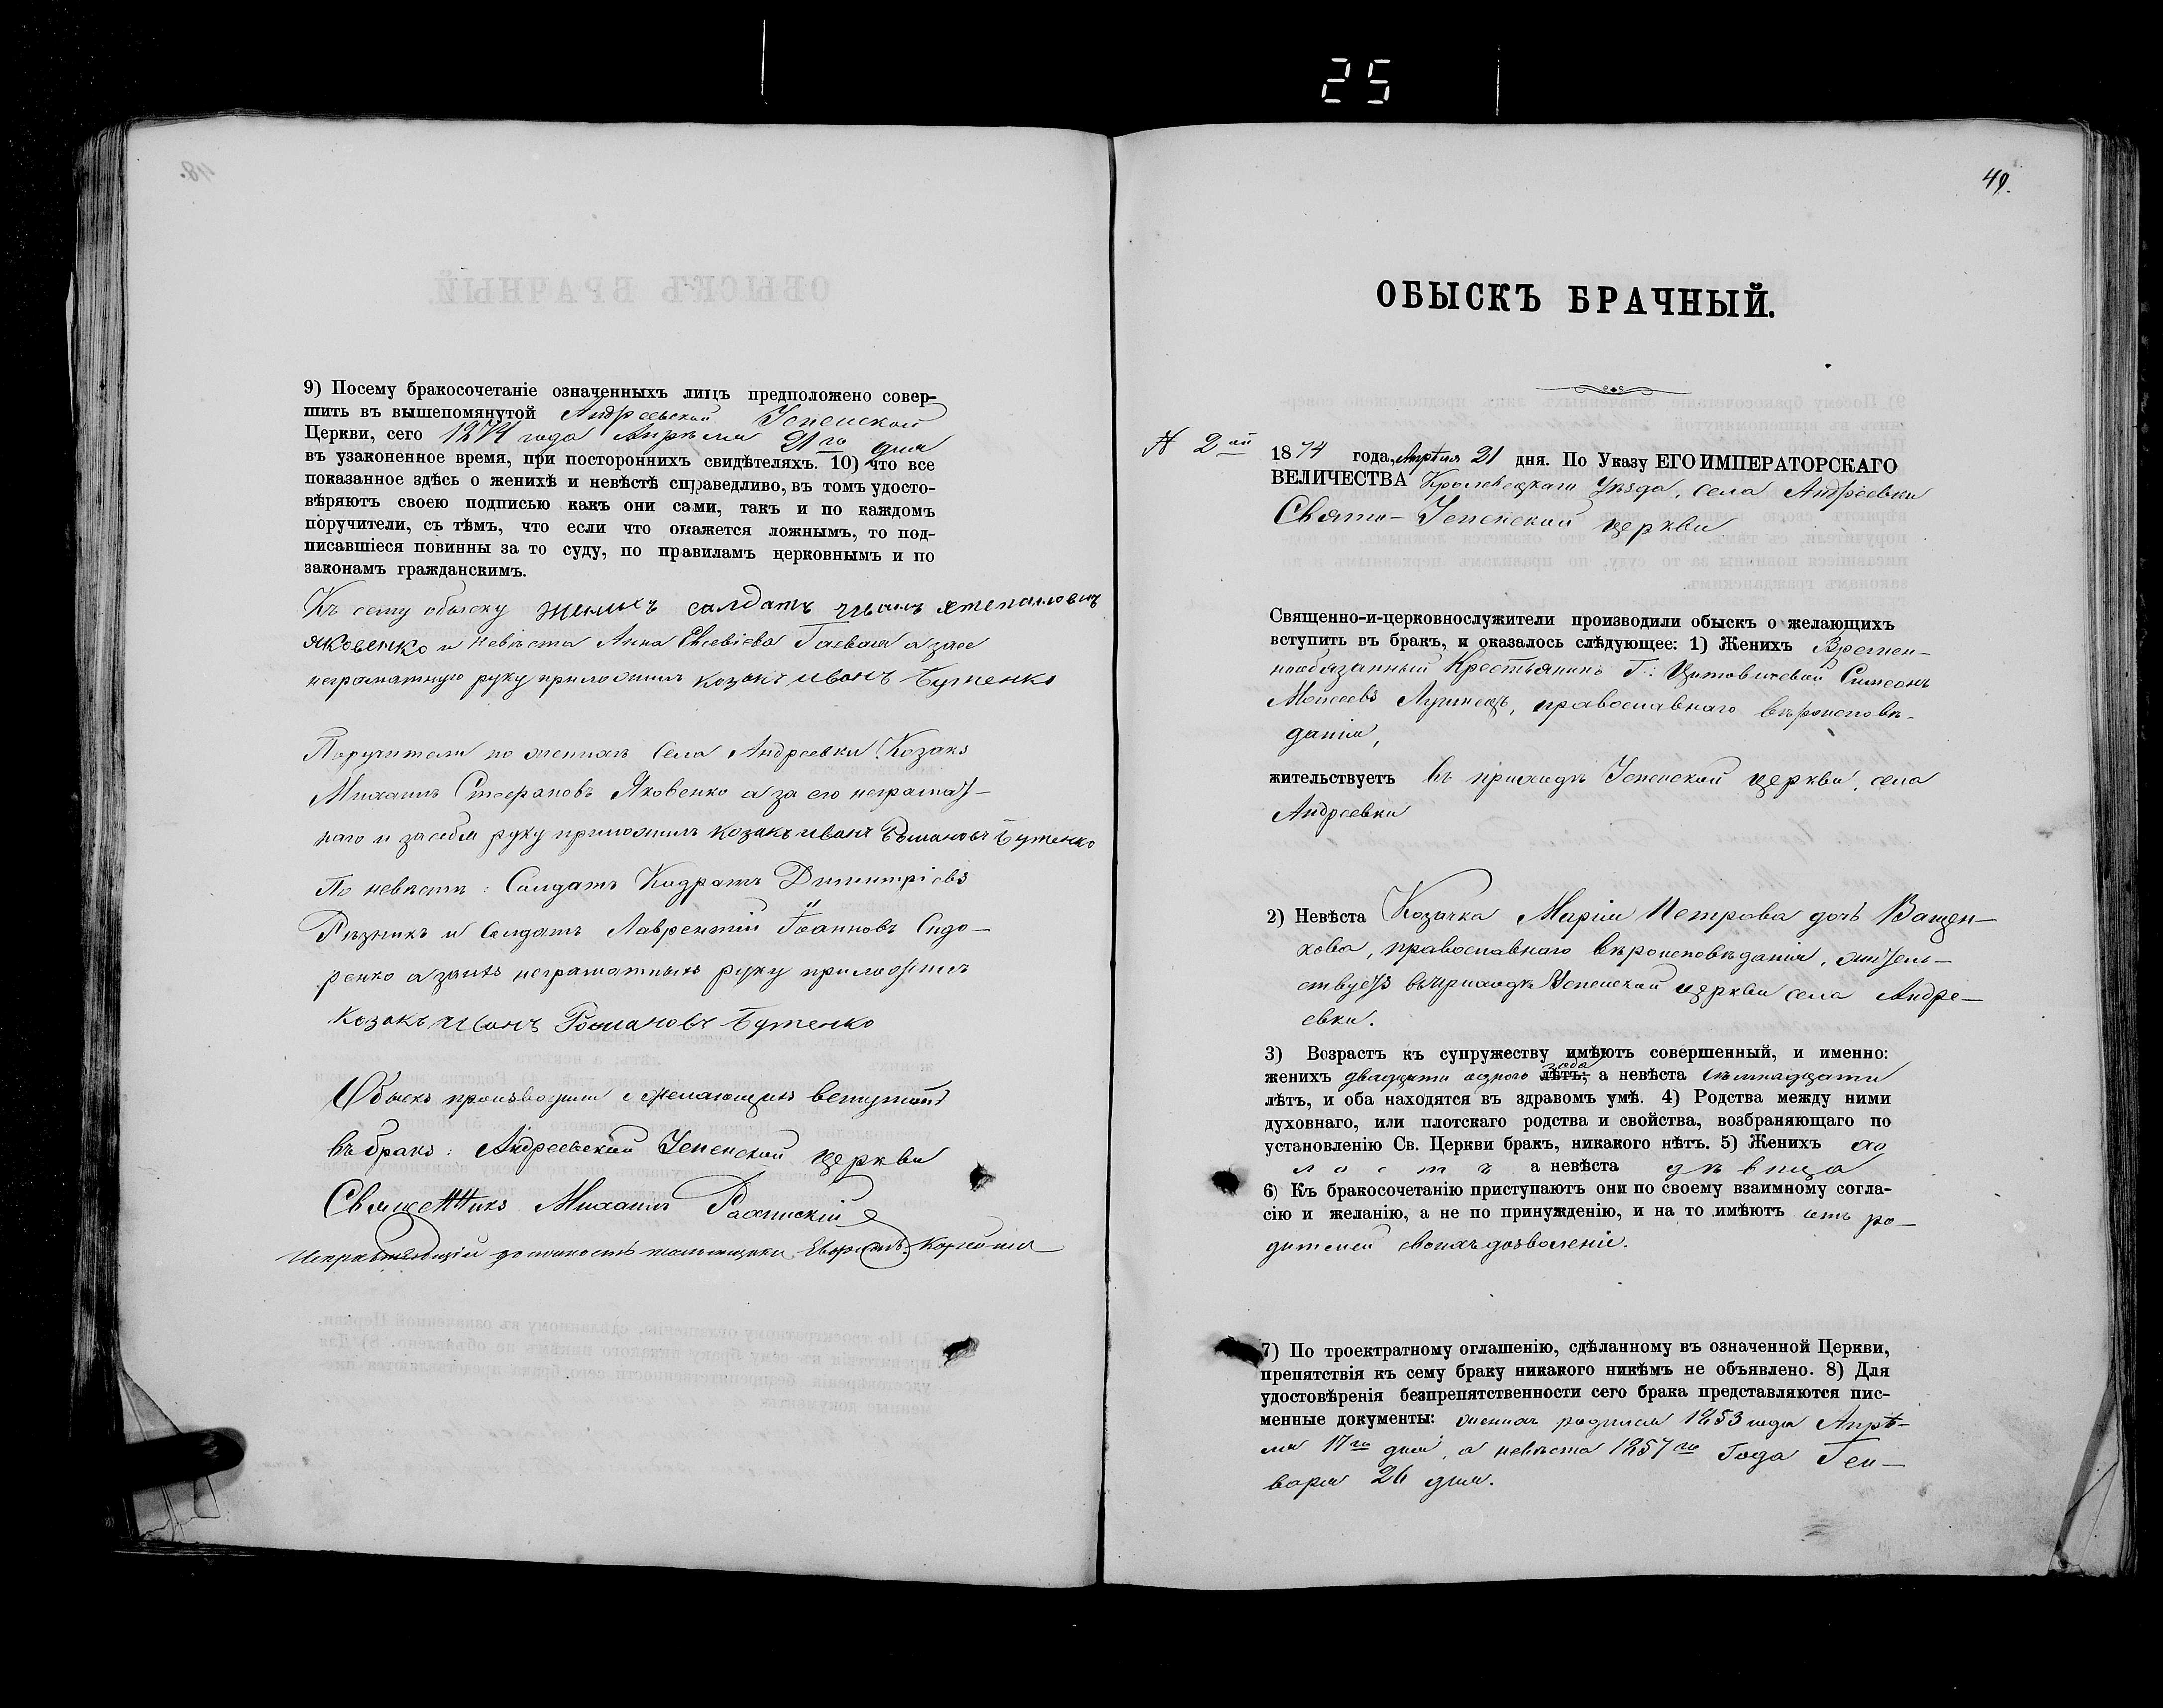 25
9) Посему бракосочетаніе означенныхъ лицъ предположено совер-
шить въ вышепомянутой Андреевской Успенской
Церкви, сего 1874 года Апрѣля 21го дня
въ узаконенное время, при постороннихъ свидѣтеляхъ. 10) что все
показанное здѣсь о женихѣ и невѣстѣ справедливо, въ томъ удосто-
вѣряютъ своею подписью какъ они сами, такъ и по каждомъ
поручители, съ тѣмъ, что если что окажется ложнымъ, то под-
писавшіеся повинны за то суду, по правиламъ церковнымъ и по
законамъ гражданскимъ.
Къ сему обыску жених салдатъ Степановъ
Яковенко и невѣста Анна Гаевая а за ее
неграматную руку приложилъ козакъ иванъ Бутенко
Поручители по женихѣ Села Андреевки Козакъ
Михаилъ Стефановъ Яковенко а за его неграмат-
наго и засебя руку приложилъ козакъ иванъ Бутенко
По невѣстѣ: Солдатъ Кодратъ Димитріевъ
Рѣзникъ и Солдатъ Лаврентій Іоанновъ Сидо-
ренко а заихъ неграматныхъ руку приложилъ
Козакъ Иванъ Романовъ Бутенко
Обыскъ производили о желающихъ вступить
въ бракъ: Андреевской Успенской церкви
Священникъ Михаилъ
должность
49.
ОБЫСКЪ БРАЧНЫЙ.
№ 2ой
1874 года, Апрѣля 21 дня. По Указу ЕГО ИМПЕРАТОРСКАГО
ВЕЛИЧЕСТВА Кролевецкаго Уѣзда, села Андреевки
Свято-Успенской церкви
Священно-и-церковнослужители производили обыскъ о желающихъ
вступить въ бракъ, и оказалось слѣдующее: 1) Женихъ Времен-
нообязанный Крестьянинъ Г: Симеонъ
Моисеевъ православнаго вѣроисповѣ-
данія,
жительствуетъ въ приходѣ Успенской церкви, села
Андреевки
2) Невѣста Козачка Марія Петрова дочь Ващен-
кова, православнаго вѣроисповѣданія, житель-
ствуетъ въ приходѣ Успенской церкви села Андре-
евки.
3) Возрастъ къ супружеству имѣютъ совершенный, и именно:
женихъ двадцати одного года лѣтъ; а невѣста семнадцати
лѣтъ, и оба находятся въ здравомъ умѣ. 4) Родства между ними
духовнаго, или плотскаго родства и свойства, возбраняющаго по
установленію Св. Церкви бракъ, никакого нѣтъ. 5) Женихъ хо
лостъ а невѣста дѣвица
6) Къ бракосочетанію приступаютъ они по своему взаимному согла-
сію и желанію, а не по принужденію, и на то имѣютъ отъ ро-
дителей своихъ дозволеніе.
7) По троектратному оглашенію, сдѣланному въ означенной Церкви,
препятствія къ сему браку никакого никѣмъ не объявлено. 8) Для
удостовѣренія безпрепятственности сего брака представляются пис-
менные документы: женихъ родился 1853 года Апрѣ-
ля 17го дня, а невѣста 1857го Года Ген-
варя 26 дня.